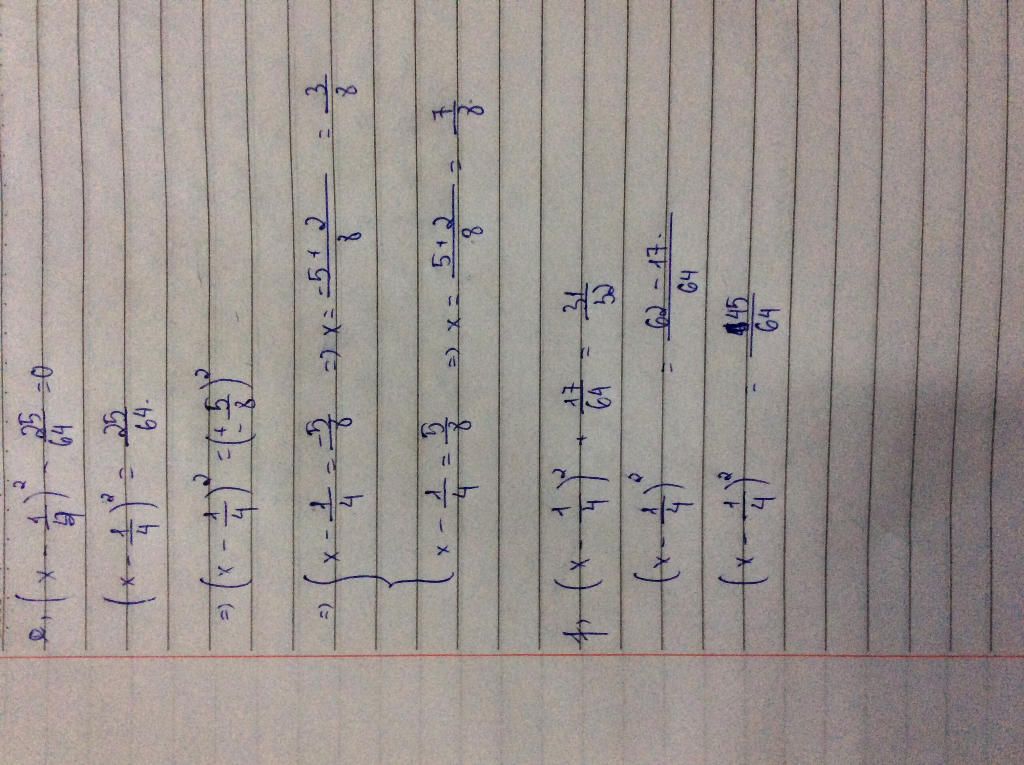 e, (x - 1/4)² - 25/64 = 0
(x - 1/4)² = 25/64.
=> (x - 1/4)² = (± 5/8)²
=> { x - 1/4 = -5/8 => x = -5 + 2 / 8 = 3/8
x - 1/4 = 5/8 => x = 5 + 2 / 8 = 7/8.
f, (x - 1/4)² + 17/64 = 31/32
(x - 1/4)² = 62 - 17. / 64
(x - 1/4)² = 45/64